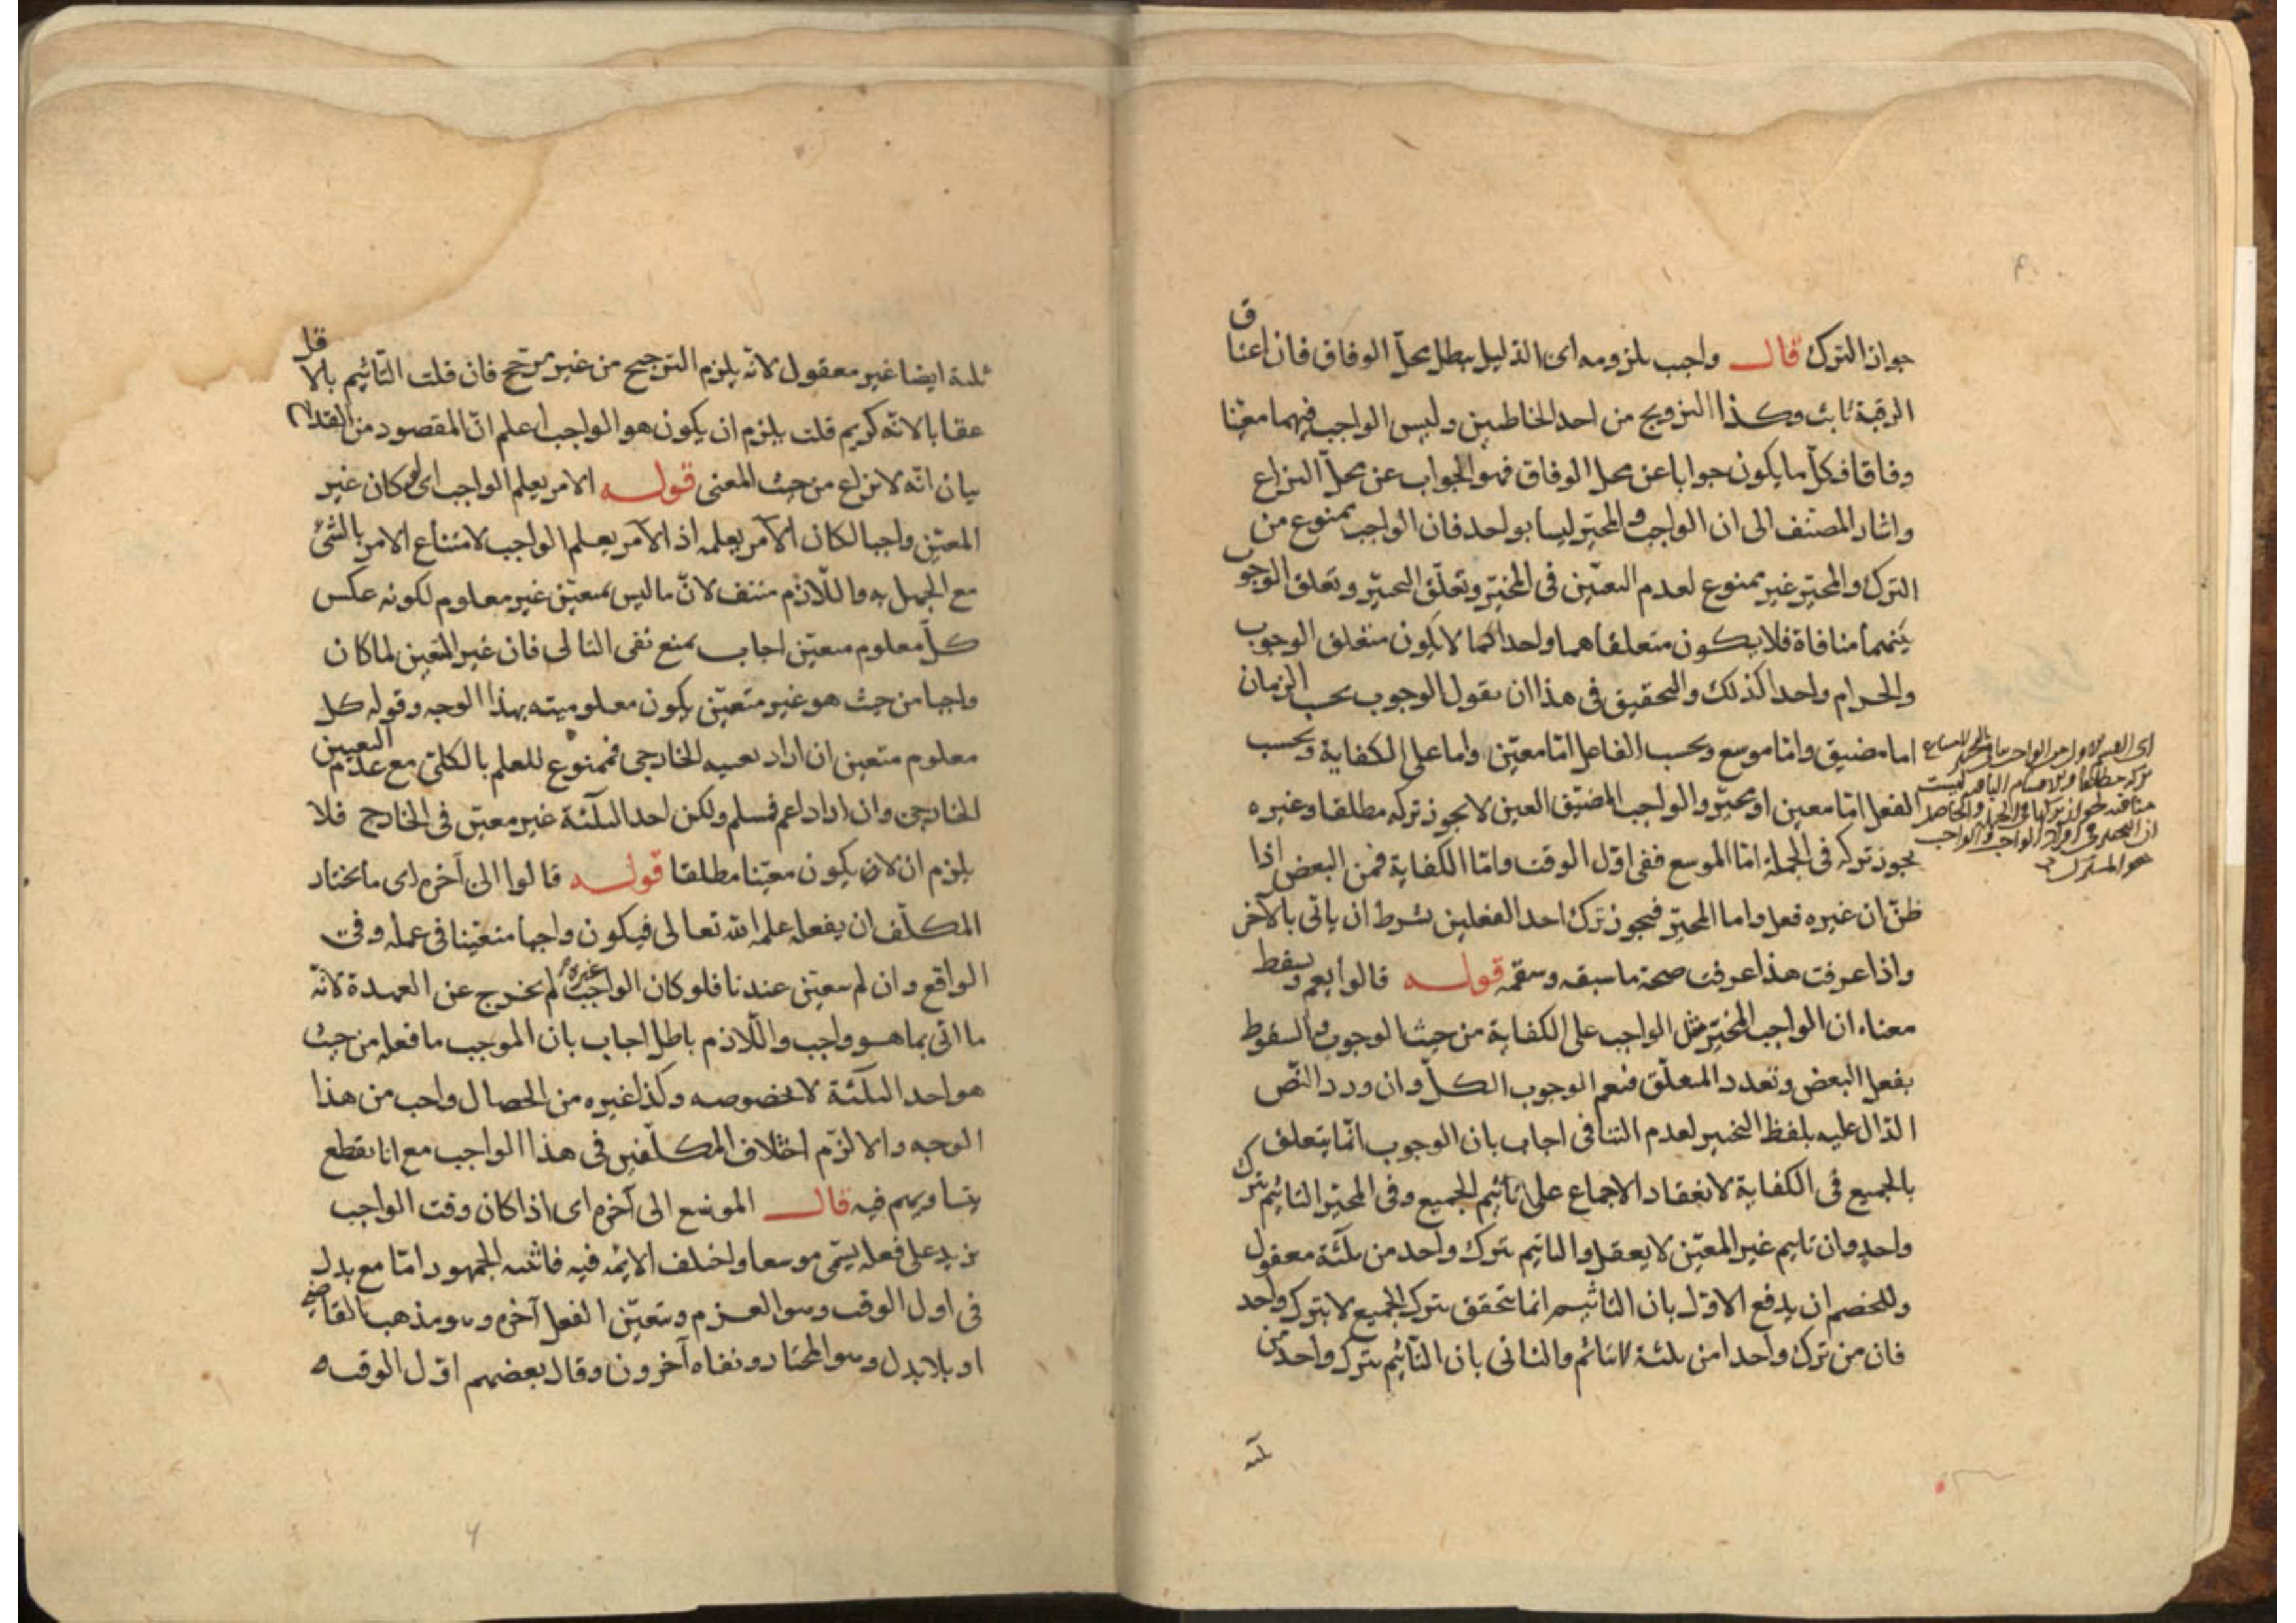 جواز الترك قال واجب بلزومه اى الدليل يبطل بمحل الوفاق فان اعتاق
الرقبة ثابت وكذا التزويج من احد الخاطبين وليس الواجب فيهما معينا
وفاقا فكل ما يكون جوابا عن محل الوفاق فهو الجواب عن محل النزاع
واشار المصنف الى ان الواجب والمخير ليسا بواحد فان الواجب ممنوع من
الترك والمخير غير ممنوع لعدم التعين فى المخير وتعلق التخيير وتعلق الوجوب
بينهما منافاة فلا يكون متعلقاهما واحدا كما لا يكون متعلق الوجوب
والحرام واحدا كذلك والتحقيق فى هذا ان نقول الوجوب بحسب الزمان
اما مضيق واما موسع وبحسب الفاعل اما معين واما على الكفاية وبحسب
الفعل اما معين او مخير والواجب المضيق العين لا يجوز تركه مطلقا وغيره
يجوز تركه فى الجملة اما الموسع ففى اول الوقت واما الكفاية فمن البعض اذا
ظن ان غيره فعل واما المخير فيجوز ترك احد الفعلين بشرط ان ياتى بالآخر
واذا عرفت هذا عرفت صحة ما سبقه وسقمه قوله قالوا يعم ويسقط
معناه ان الواجب المخير مثل الواجب على الكفاية من حيث الوجوب والسقوط
بفعل البعض وتعدد المتعلق فيعم الوجوب الكل وان ورد النص
الدال عليه بلفظ التخيير لعدم التنافى اجاب بان الوجوب انما يتعلق
بالجميع فى الكفاية لانعقاد الاجماع على تاثيم الجميع وفى المخير التاثيم بترك
واحد وان تاثيم غير المعين لا يعقل والتاثيم بترك واحد من ثلثة معقول
وللخصم ان يدفع الاول بان التاثيم انما يتحقق بترك الجميع لا بترك واحد
فان من ترك واحدا من ثلثة لا ياثم والثانى بان التاثيم بترك واحد من
ثلثة
اى القسم الاول هو الواجب
تركه مطلقا والاقسام الباقية ليست
هو المشترك
ثلثة ايضا غير معقول لانه يلزم الترجيح من غير مرجح فان قلت التاثيم بالاقل
عقابا لانه كريم قلت يلزم ان يكون هو الواجب اعلم ان المقصود من
بيان انه لا نزاع من حيث المعنى قوله الامر يعلم الواجب اى لو كان غير
المعين واجبا لكان الآمر يعلمه اذ الآمر يعلم الواجب لامتناع الامر بالشئ
مع الجهل به واللازم منتف لان ما ليس بمعين غير معلوم لكونه عكس
كل معلوم متعين اجاب بمنع نفى التالى فان غير المتعين لما كان
واجبا من حيث هو غير متعين يكون معلوميته بهذا الوجه وقوله كل
معلوم متعين ان اراد تعينه الخارجى فممنوع للعلم بالكلى مع عدم التعيين
الخارجى وان اراد اعم فمسلم ولكن احد الثلثة غير معين فى الخارج فلا
يلزم ان لا يكون معينا مطلقا قوله قالوا الى آخره اى ما يختار
المكلف ان يفعله علمه الله تعالى فيكون واجبا متعينا فى علمه وفى
الواقع وان لم يتعين عندنا فلو كان الواجب غيره لم يخرج عن العهدة لانه
ما اتى بما هو واجب واللازم باطل اجاب بان الموجب ما فعله من حيث
هو احد الثلثة لا بخصوصه وكذا غيره من الخصال واجب من هذا
الوجه والا لزم اختلاف المكلفين فى هذا الواجب مع انا نقطع
بتساويهم فيه قال الموسع الى آخره اى اذا كان وقت الواجب
يزيد على فعله يسمى موسعا واختلف الائمة فيه فاثبته الجمهور اما مع بدل
فى اول الوقت وهو العزم ويتعين الفعل آخره وهو مذهب القاضى
او بلا بدل وهو المختار ونفاه آخرون وقال بعضهم اول الوقت
٦